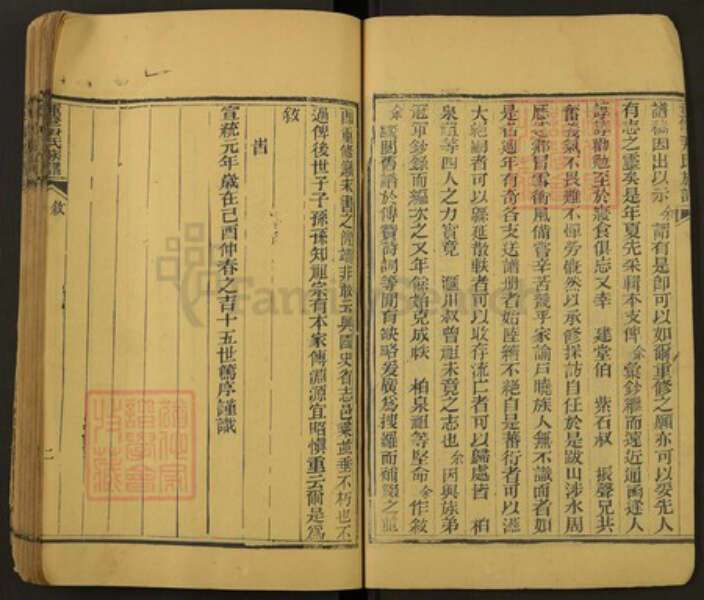 譜稿因出以示余謂有是卽可以如爾重修之願亦可以妥先人
有志之靈矣是年夏先采輯本支俾余彙鈔繼而遠近通函逢人
諄諄勸勉至於寢食俱忘又幸 建堂伯 紫石叔 振聲兄共
奮義氣不畏難不憚勞慨然以承修採訪自任於是跋山涉水周
歷之鄉冒雪衝風備嘗辛苦幾乎家諭戶曉族人無不識面者如
是者週年有奇各支送譜册者始陸續不絕自是蕃行者可以滙
大絕嗣者可以緜延散軼者可以收存流亡者可以歸處皆 柏
泉祖等四人之力實竟 滙川叔曾祖未竟之志也余因與族弟
冠軍鈔錄而編次之又年餘始克成帙 柏泉祖等堅命余作敘
余竊閱舊譜於傳贊詩詞等間有缺略爰廣爲搜羅而補綴之並
重修顚末書之簡端非敢云與國史省志邑乘並垂不朽也不
過俾後世子子孫孫知祖宗有本家傳淵源宜昭愼重云爾是爲
敘
旹
宣統元年歲在己酉仲春之吉十五世篤序謹識
氏族譜
敘
二
FamilySearch